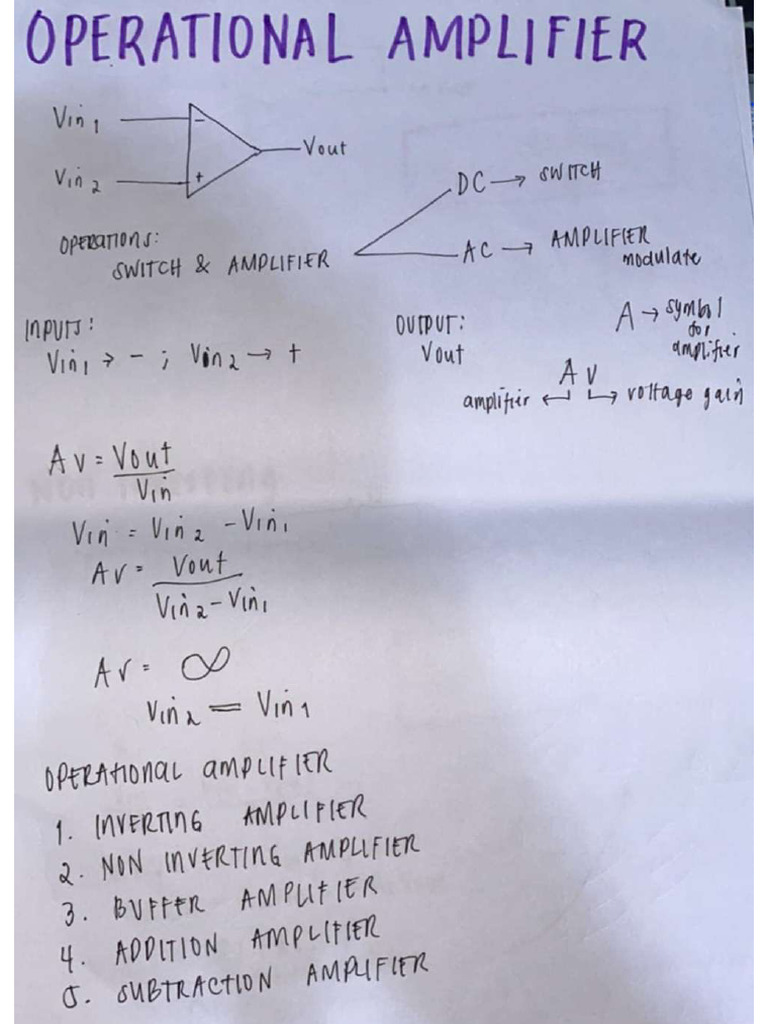 OPERATIONAL AMPLIFIER
Vin1
−
Vout
Vin2
+
DC → SWITCH
OPERATIONS:
SWITCH & AMPLIFIER
AC → AMPLIFIER
modulate
INPUTS:
Vin1 → - ; Vin2 → +
OUTPUT:
Vout
A → symbol
for
amplifier
AV
amplifier ← → voltage gain
AV = Vout
Vin
Vin = Vin2 - Vin1
AV = Vout
Vin2 - Vin1
AV = ∞
Vin2 = Vin1
OPERATIONAL AMPLIFIER
1. INVERTING AMPLIFIER
2. NON INVERTING AMPLIFIER
3. BUFFER AMPLIFIER
4. ADDITION AMPLIFIER
5. SUBTRACTION AMPLIFIER